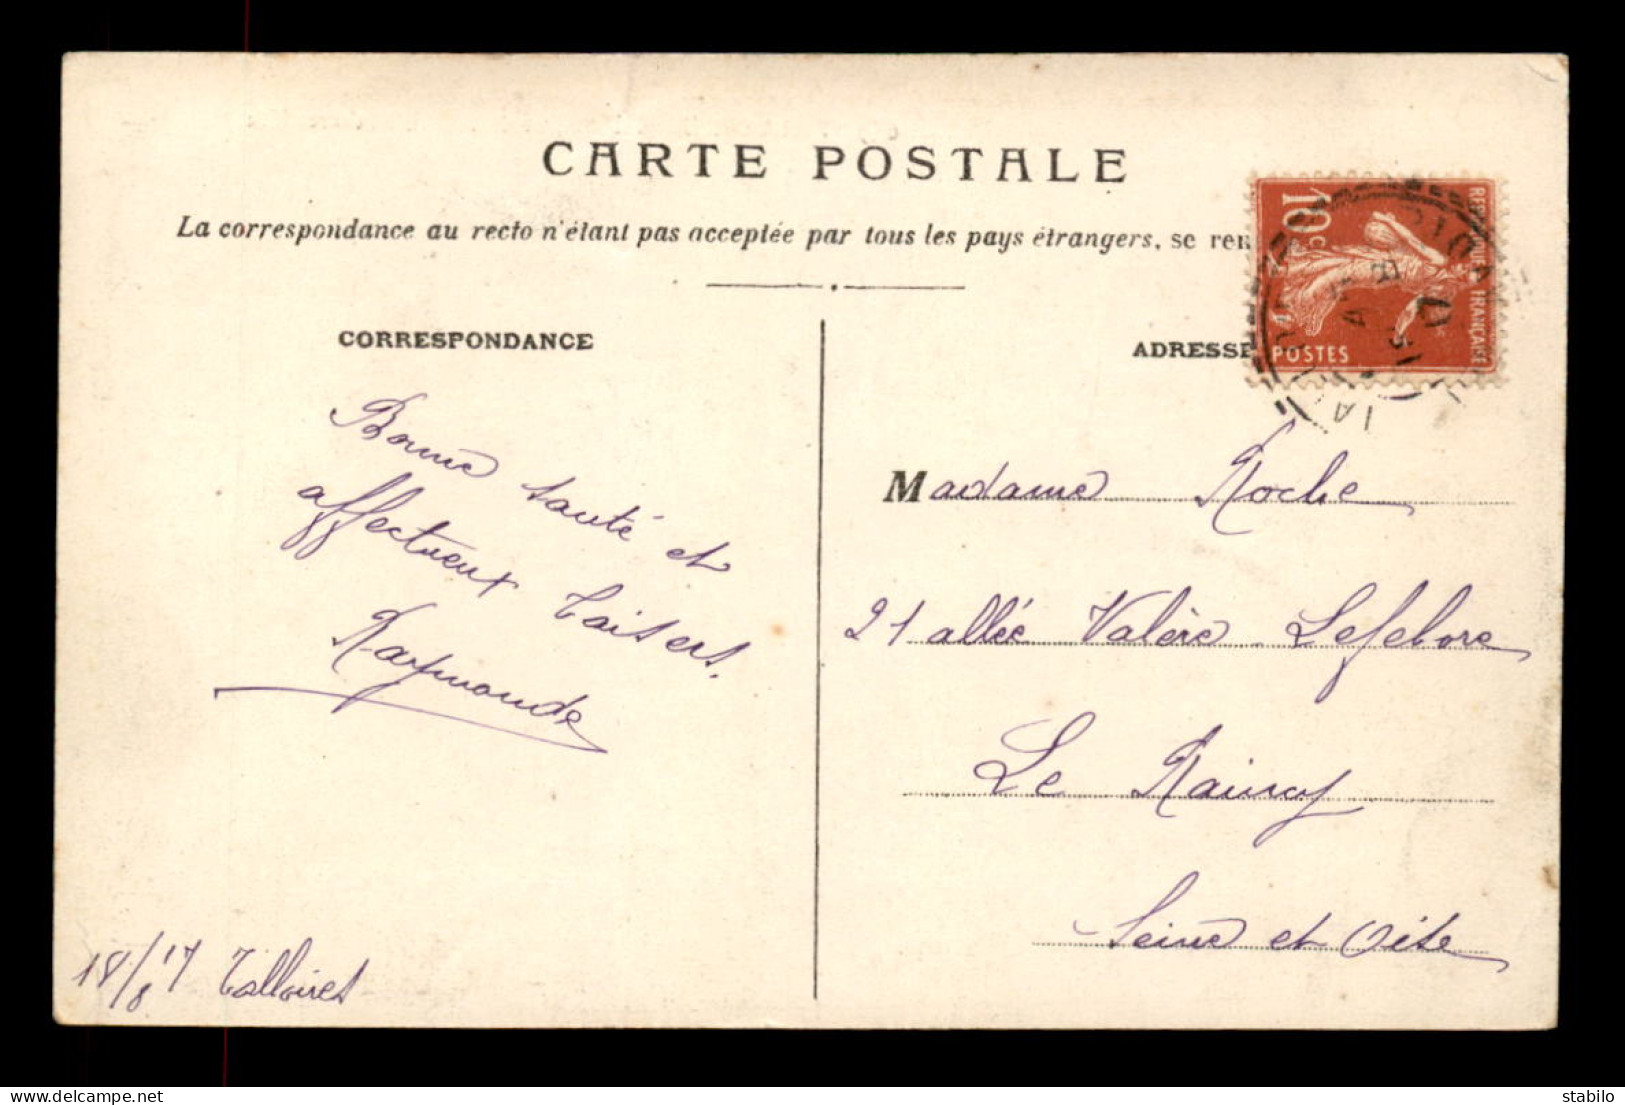 CARTE POSTALE
La correspondance au recto n'étant pas acceptée par tous les pays étrangers, se ren
CORRESPONDANCE
Bonne santé et
affectueux baisers.
Raymonde
18/8 17 Talloires
ADRESSE
10 c
REPUBLIQUE FRANÇAISE
POSTES
Madame Roche
21 allée Valère Lefebvre
Le Raincy
Seine et Oise
stabilo
www.delcampe.net